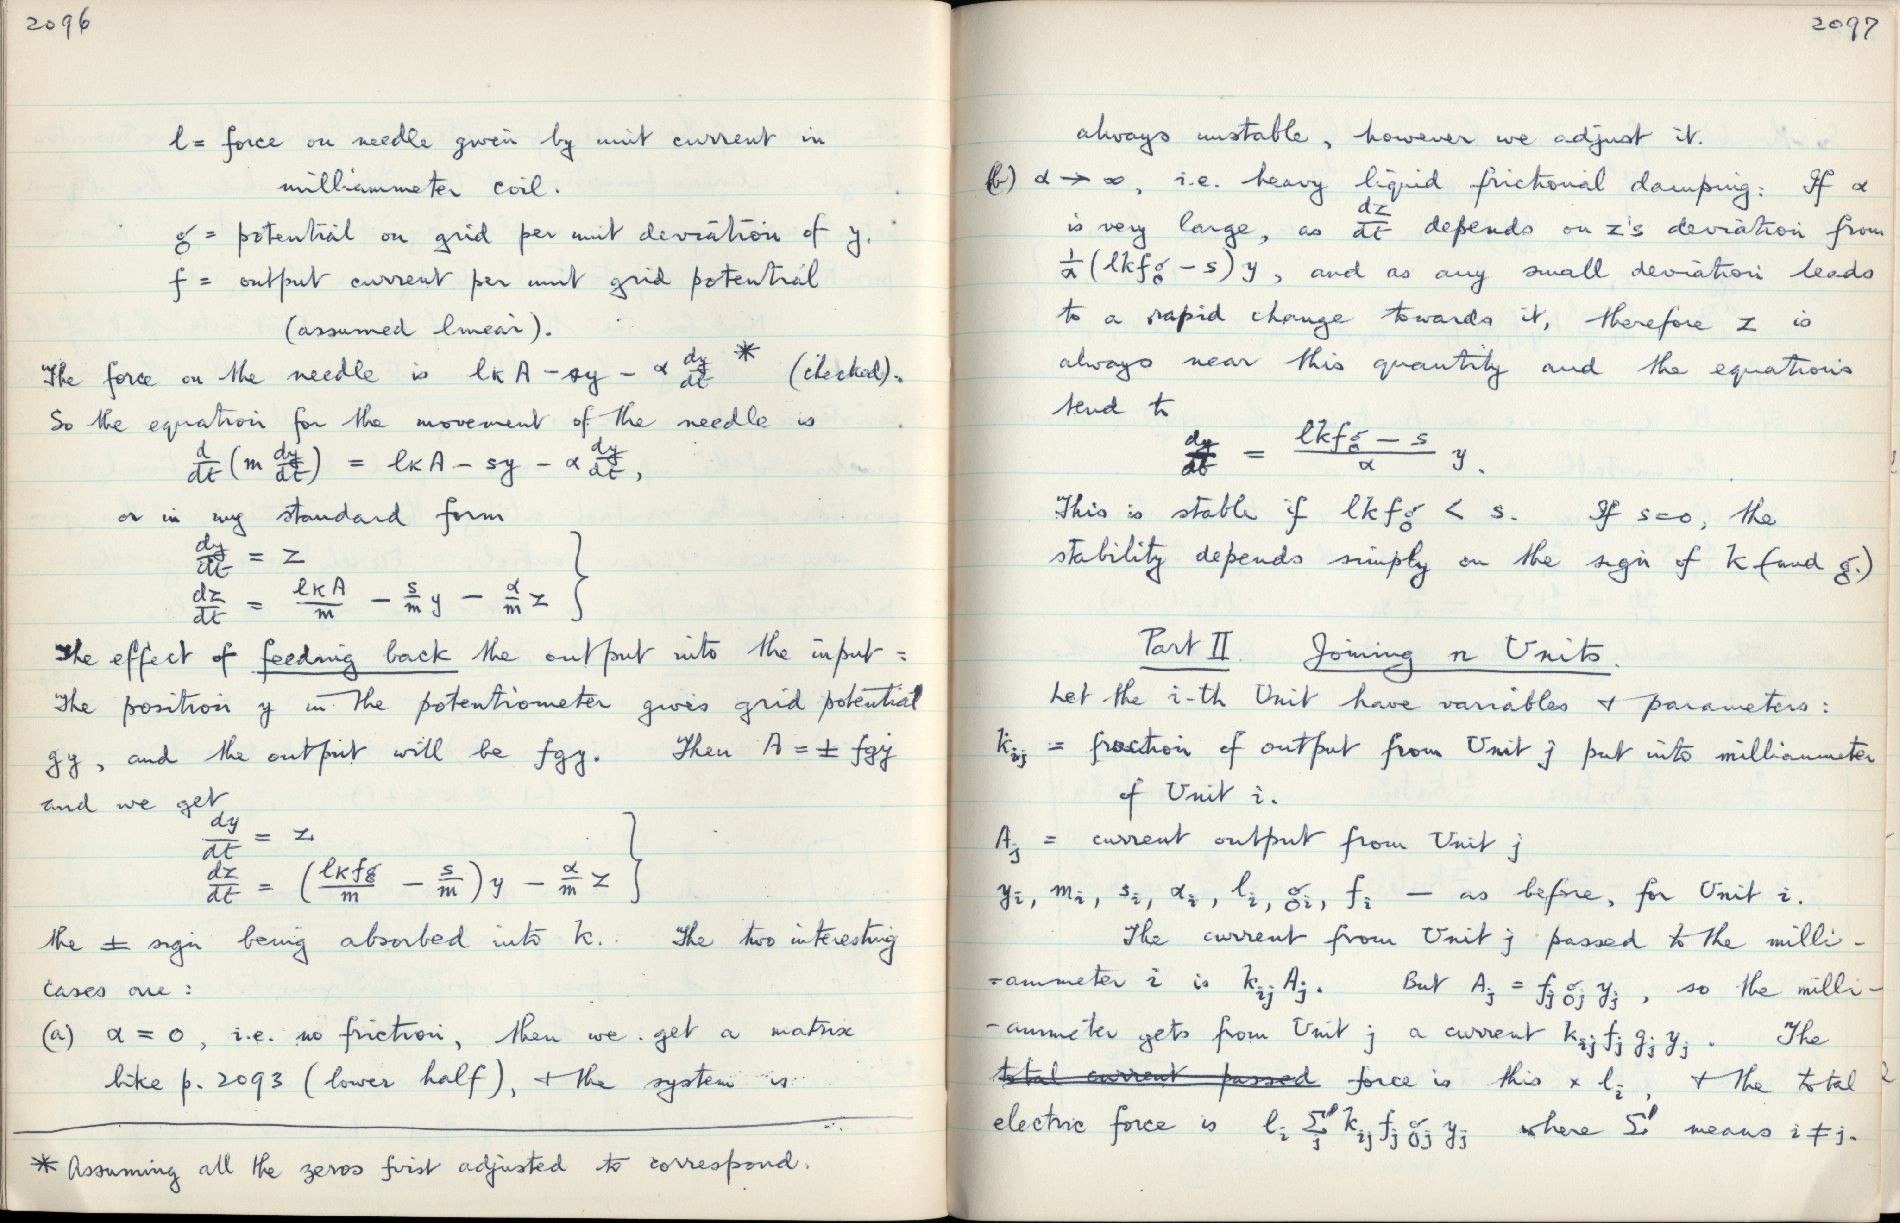 2096
l = force on needle given by unit current in
milliammeter coil.
g = potential on grid per unit deviation of y.
f = output current per unit grid potential
(assumed linear).
The force on the needle is lkA − sy − α dy/dt * (checked).
So the equation for the movement of the needle is
d/dt (m dy/dt) = lkA − sy − α dy/dt,
or in my standard form
dy/dt = z
dz/dt = lkA/m − s/m y − α/m z }
The effect of feeding back the output into the input =
The position y in the potentiometer gives grid potential
gy, and the output will be fgy. Then A = ± fgy
and we get
dy/dt = z
dz/dt = (lkfg/m − s/m) y − α/m z }
the ± sign being absorbed into k. The two interesting
cases are:
(a) α = 0, i.e. no friction, then we get a matrix
like p. 2093 (lower half), + the system is
* Assuming all the zeros first adjusted to correspond.
2097
always unstable, however we adjust it.
(b) α → ∞, i.e. heavy liquid frictional damping: If α
is very large, as dz/dt depends on z's deviation from
1/α (lkfg − s) y, and as any small deviation leads
to a rapid change towards it, therefore z is
always near this quantity and the equations
tend to
dy/dt = (lkfg − s)/α y.
This is stable if lkfg < s. If s=0, the
stability depends simply on the sign of k (and g.)
Part II. Joining n Units.
Let the i-th Unit have variables + parameters:
kij = fraction of output from Unit j put into milliammeter
of Unit i.
Aj = current output from Unit j
yi, mi, si, αi, li, gi, fi — as before, for Unit i.
The current from Unit j passed to the milli-
=ammeter i is kij Aj. But Aj = fj gj yj, so the milli-
-ammeter gets from Unit j a current kij fj gj yj. The
total current passed force is this × li, + the total
electric force is li Σ'j kij fj gj yj where Σ' means i ≠ j.